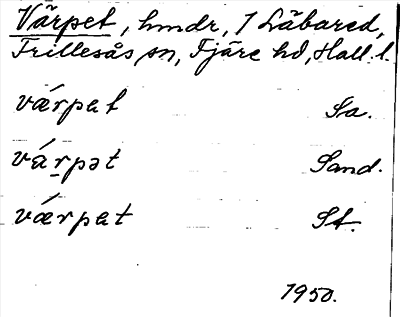 Värpet, hmdr, 1 Läbared,
Frillesås sn, Fjäre hd, Hall. l.
værpet Sa.
värpət Sand.
værpet St.
1950.